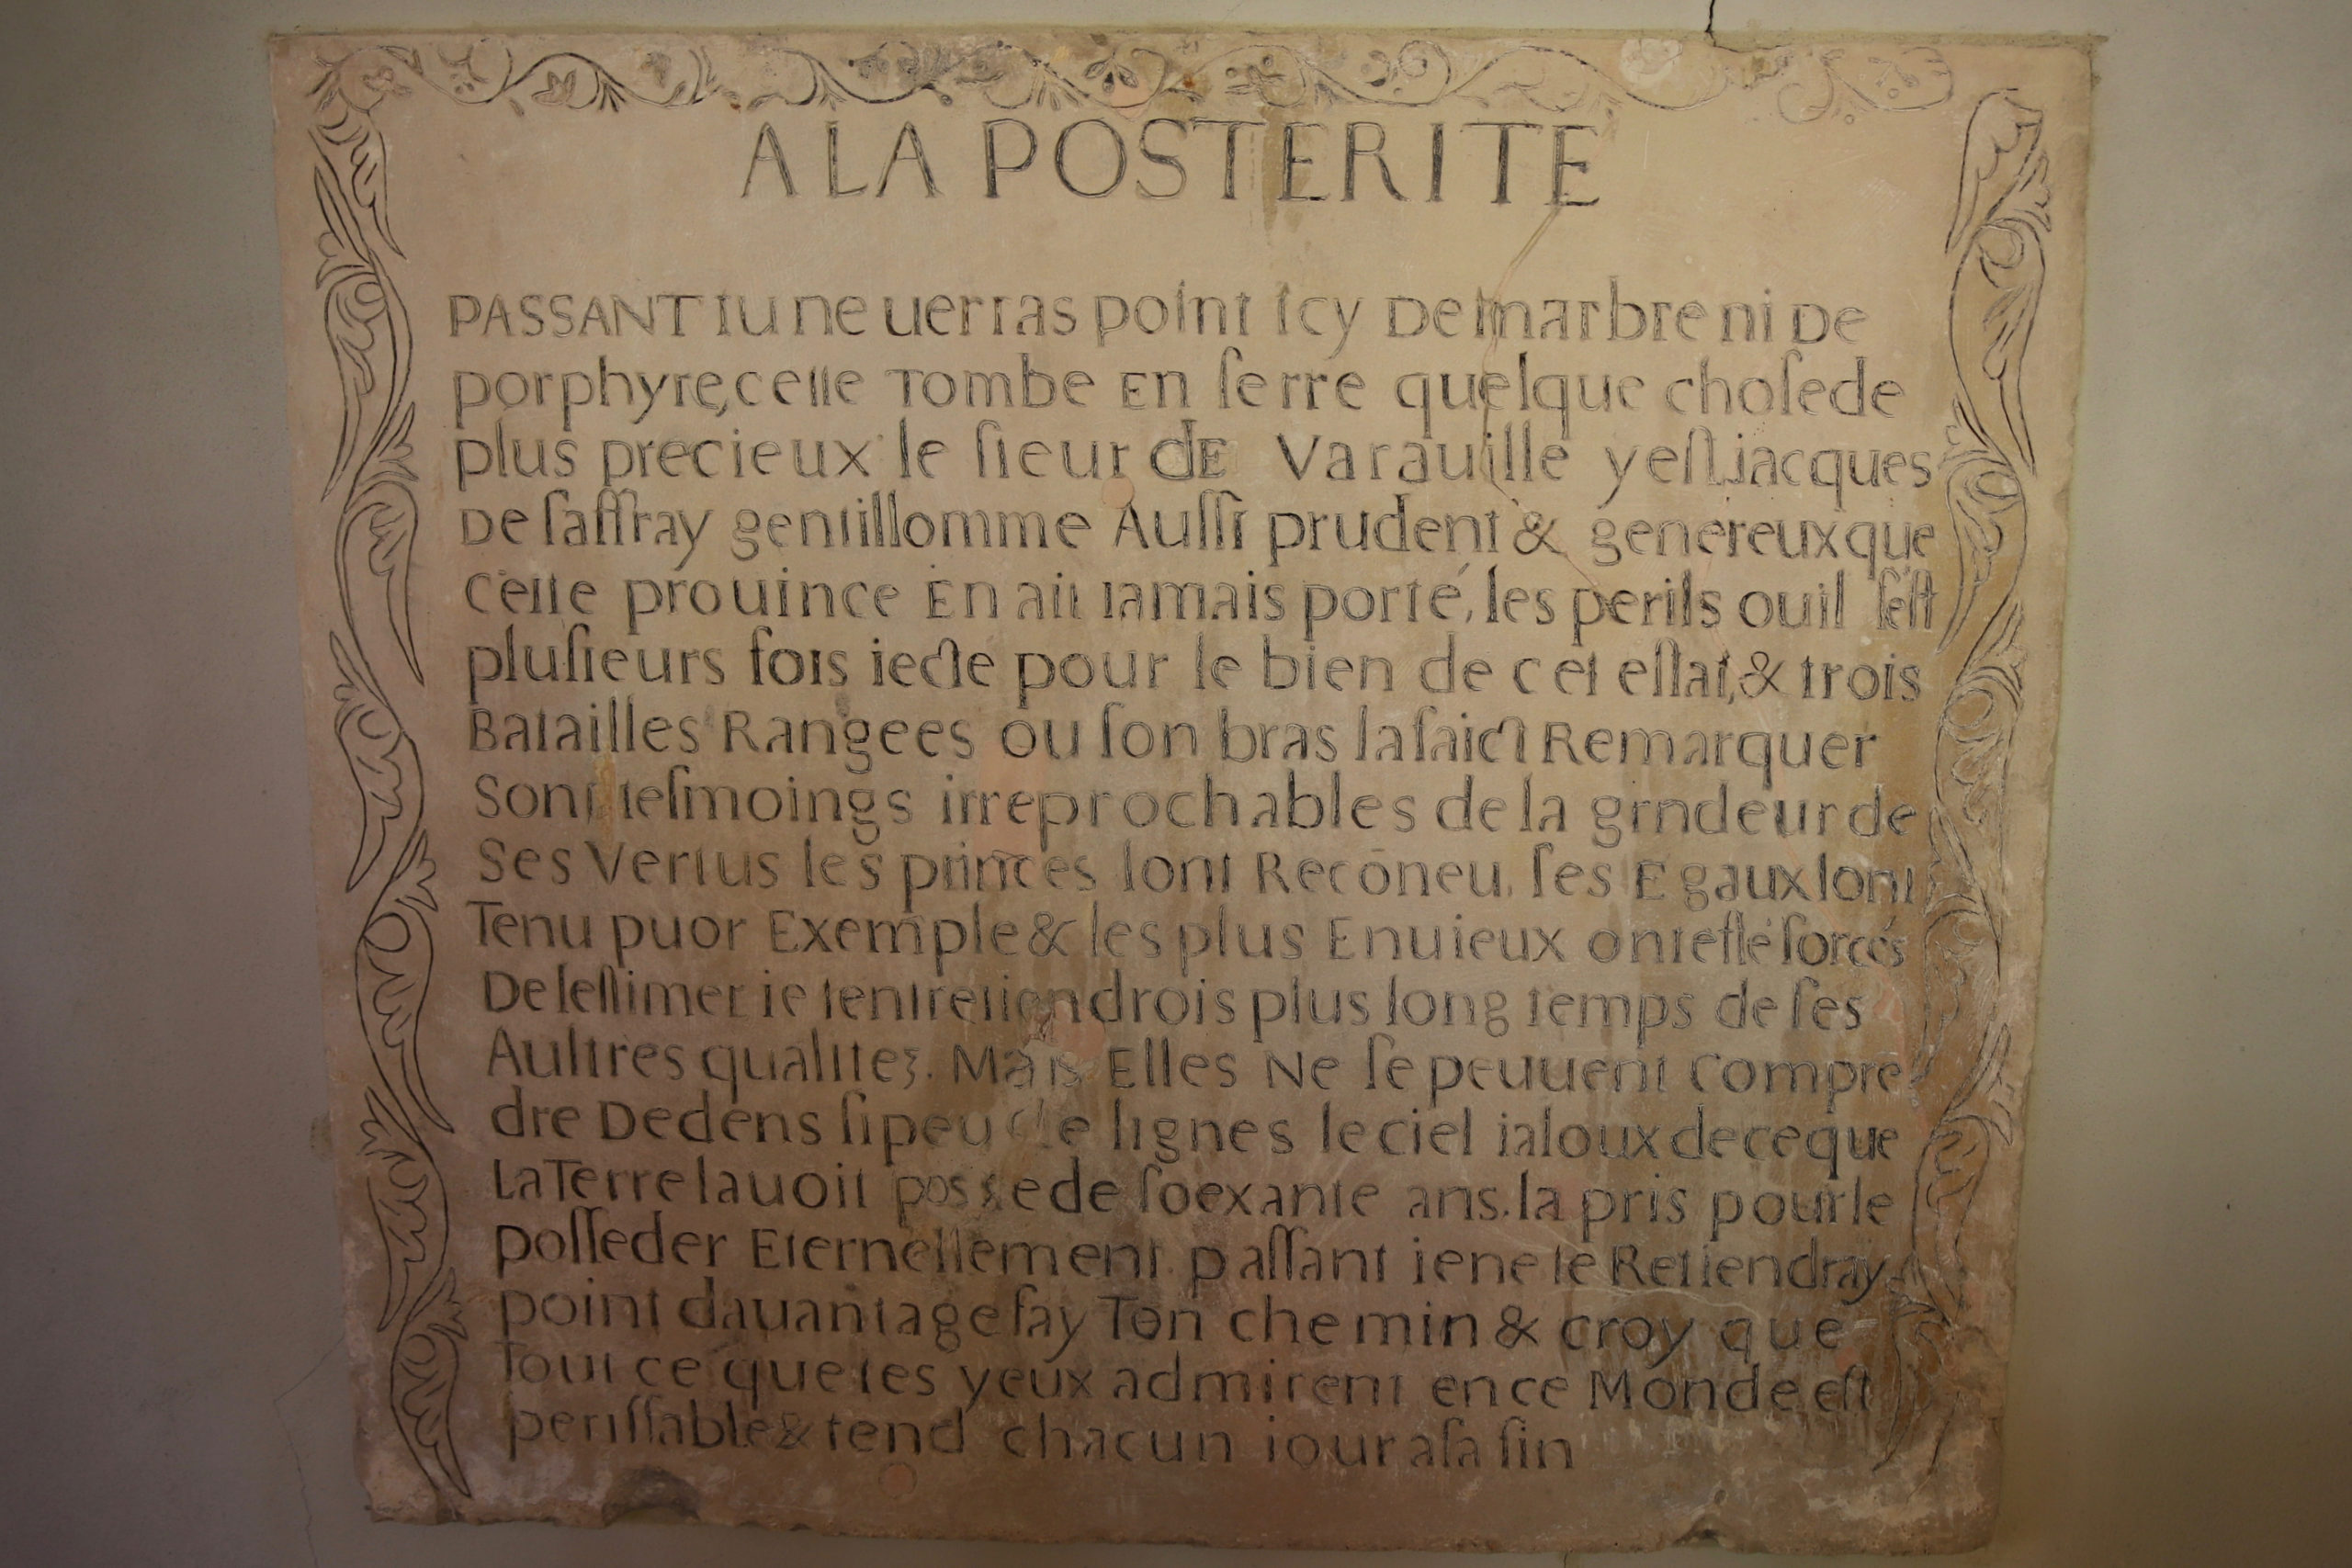 A LA POSTERITE
PASSANT tu ne uerras point icy De marbre ni De
porphyre, cette Tombe En ſerre quelque choſe de
plus precieux le ſieur dE Varauille y eſt. jacques
De ſaffray gentillomme Auſſi prudent & genereux que
Cette prouince En ait iamais porté, les perils ou il ſeſt
pluſieurs fois iecte pour le bien de cet eſtat, & trois
Batailles Rangees ou ſon bras la faict Remarquer
Sont teſmoings irreprochables de la grndeur de
Ses Vertus les princes lont Recōneu, ſes Egaux lont
Tenu puor Exemple & les plus Enuieux ont eſté forcés
De leſtimer ie tentretiendrois plus long temps de ſes
Aultres qualitez. Mais Elles Ne ſe peuuent Compre
dre Dedens ſi peu de lignes le ciel ialoux de ce que
La Terre lauoit possede ſoexante ans. la pris pour le
poſſeder Eternellement. paſſant ie ne te Retiendray
point dauantage fay Ton chemin & croy que
Tout ce que tes yeux admirent en ce Monde eſt
periſſable & tend chacun iour a ſa fin